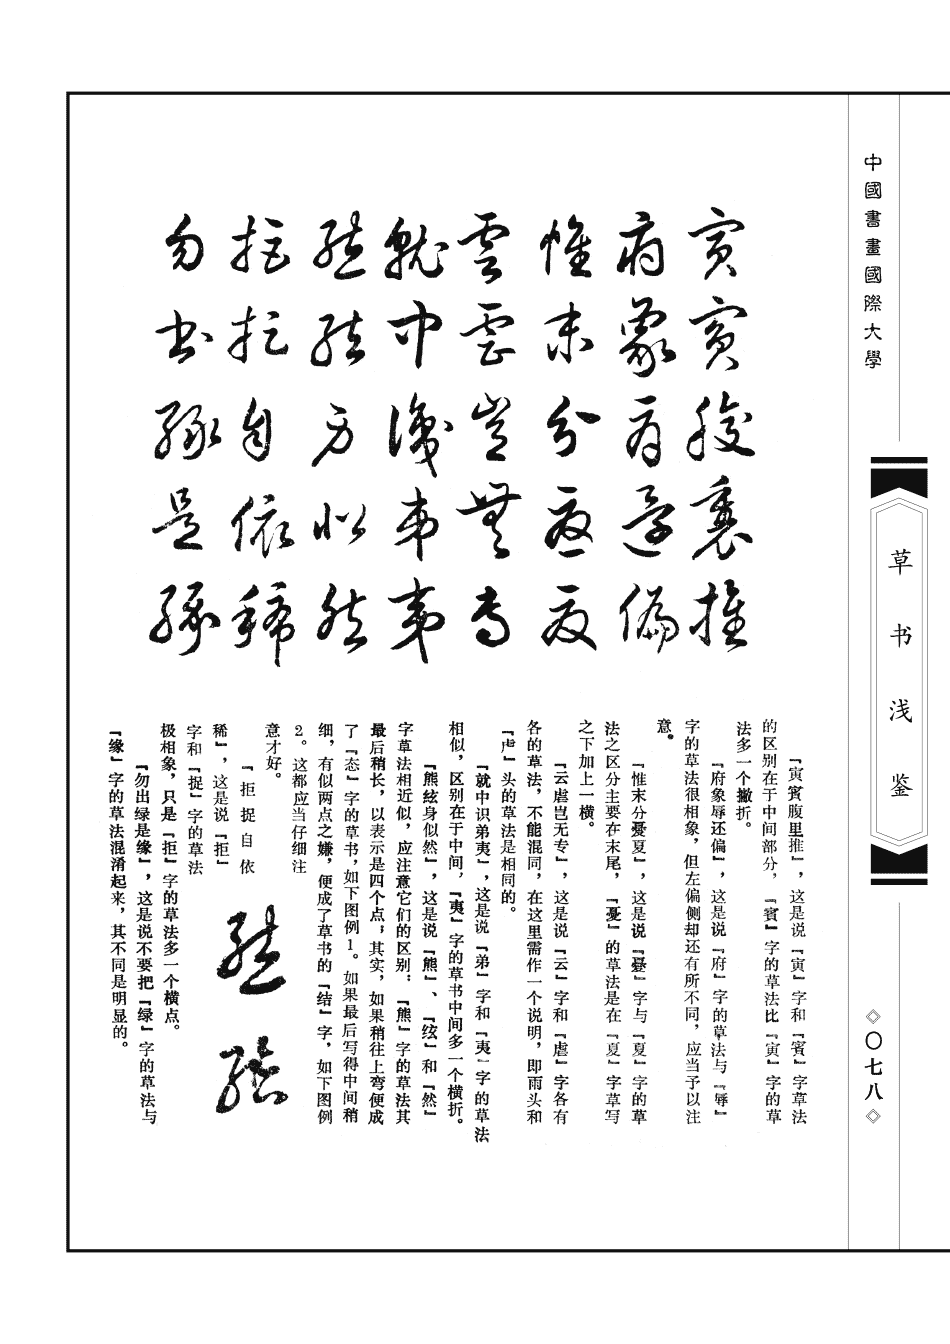 中國書畫國際大學
草书浅鉴
◇〇七八◇
寅賓腹裏推
府象辱還偏
惟末分憂夏
雲虐豈無专
就中識弟夷
熊絃方似然
拒捉自依稀
勿出緑是緣
『寅賓腹里推』，这是说『寅』字和『賓』字草法
的区别在于中间部分，『賓』字的草法比『寅』字的草
法多一个撇折。
『府象辱还偏』，这是说『府』字的草法与『辱』
字的草法很相象，但左偏侧却还有所不同，应当予以注
意。
『惟末分憂夏』，这是说『憂』字与『夏』字的草
法之区分主要在末尾，『憂』的草法是在『夏』字草写
之下加上一横。
『云虐岂无专』，这是说『云』字和『虐』字各有
各的草法，不能混同，在这里需作一个说明，即雨头和
『虍』头的草法是相同的。
『就中识弟夷』，这是说『弟』字和『夷』字的草法
相似，区别在于中间，『夷』字的草书中间多一个横折。
『熊絃身似然』，这是说『熊』、『絃』和『然』
字草法相近似，应注意它们的区别：『熊』字的草法其
最后稍长，以表示是四个点；其实，如果稍往上弯便成
了『态』字的草书，如下图例1。如果最后写得中间稍
细，有似两点之嫌，便成了草书的『结』字，如下图例
2。这都应当仔细注
意才好。
『拒捉自依
稀』，这是说『拒』
字和『捉』字的草法
极相象，只是『拒』字的草法多一个横点。
『勿出绿是缘』，这是说不要把『绿』字的草法与
『缘』字的草法混淆起来，其不同是明显的。